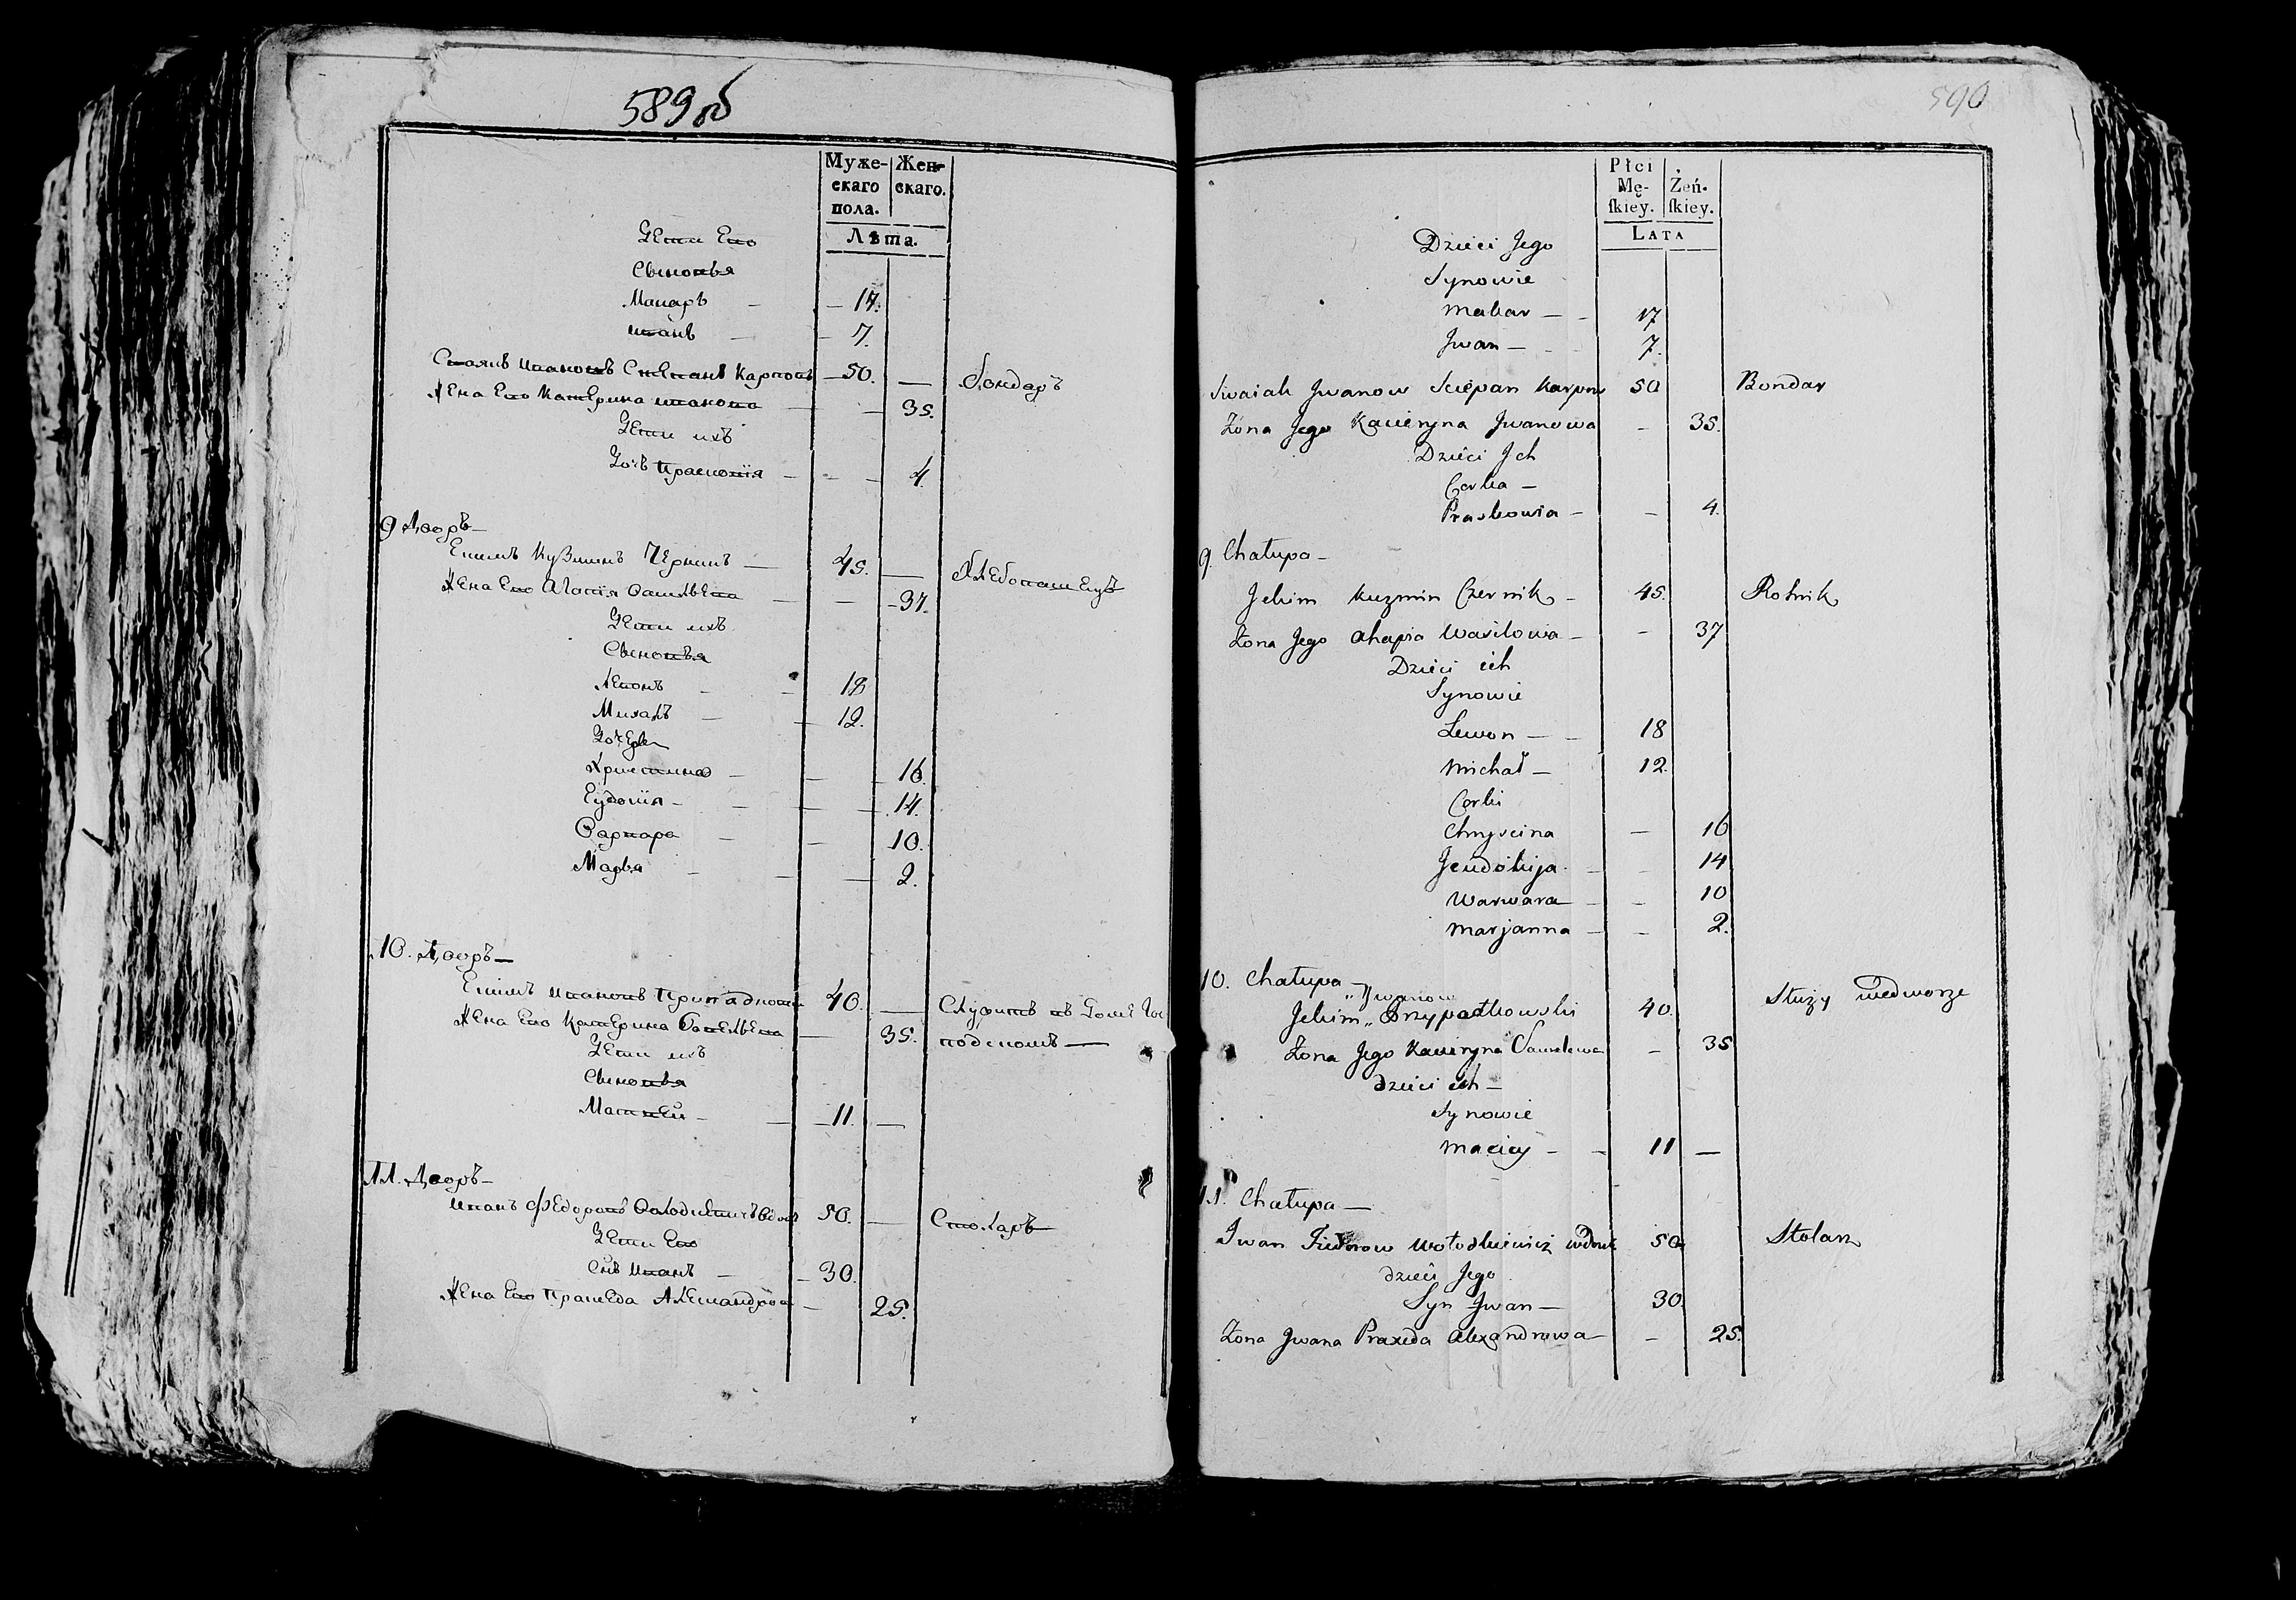 589 об
Муже-
скаго
пола.
Жен-
скаго.
Лѣта.
Дети Его
Сыновья
Макаръ — 17.
Иванъ — 7.
Своякъ Ивановъ Степанъ Карповъ — 50. — Бондаръ
Жена Его Катерина Иванова — 35.
Дети ихъ
Дочь Прасковiя — 4
9 Дворъ —
Ефимъ Кузминъ Черникъ — 45. — Хлебопашецъ
Жена Его Агапiя Васильева — 37.
Дети ихъ
Сыновья
Левонъ — 18
Михалъ — 12.
Дочери
Христина — 16.
Еудокiя — 14.
Варвара — 10.
Марья — 2.
10. Дворъ —
Ефимъ Ивановъ 40. — Служитъ въ Доме
Жена Его Катерина Савельева — 35.
Дети ихъ
Сыновья
Матвей — 11. —
11. Дворъ —
Иванъ Федоровъ 50. — Столяръ
Дети Его
Снъ Иванъ — 30.
Жена Его Праседа Александрова — 25.
590
Płci
Mę-
ſkiey.
Żeń-
ſkiey.
LATA
Dzieci Jego
Synowie
Makar — 17
Jwan — 7.
Swaiak Jwanow Sciepan Karpow 50 Bondar
Żona Jego Kacieryna Jwanowa — 35.
Dzieci Jch
Corka —
Praskowia — 4.
9. Chałupa —
Jefim Kuzmin Czernik — 45. Rolnik
Żona Jego Ahapia Wasilowa — 37
Dzieci ich
Synowie
Lewon — 18
Michał — 12.
Corki
Chryscina — 16
Jeudokija — 14
Warwara — 10
Marjanna — 2.
10. Chałupa —
„Jwanow
Jefim „ Przypadkowski 40. Służy wedworze
Żona Jego Kacieryna Sawelewa — 35
dzieci ich —
Synowie
Maciey — 11 —
11. Chałupa —
Jwan Fiedorow Wołodkiewicz wdowiec 50 Stolarz
dzieci Jego
Syn Jwan — 30.
Żona Jwana Praxeda Alexandrowa — 25.